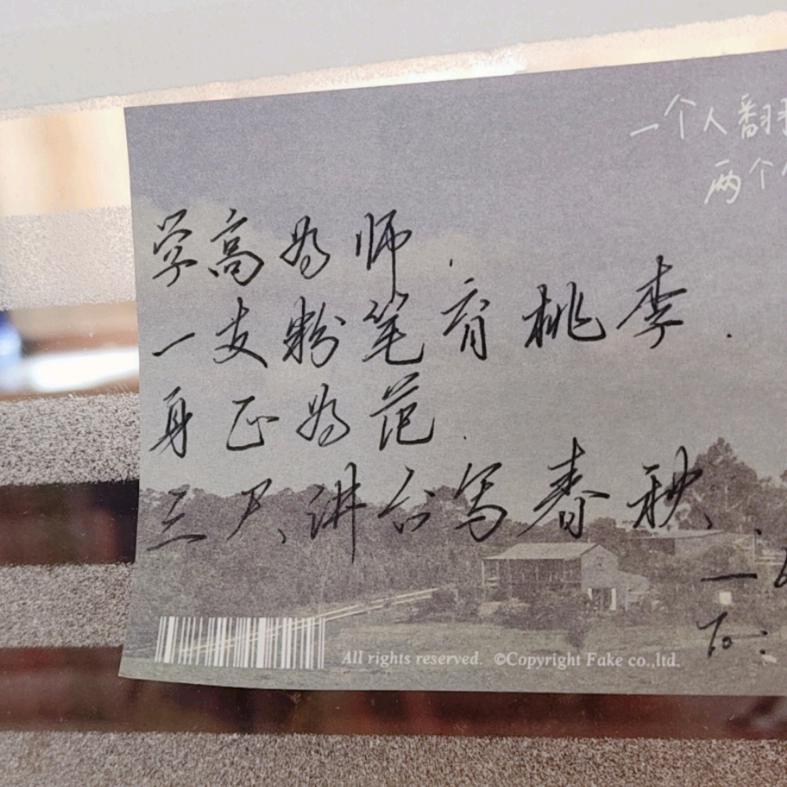 一个人翻
两个
学高为师.
一支粉笔育桃李.
身正为范.
三尺讲台写春秋.
To:
All rights reserved. ©Copyright Fake co.,ltd.